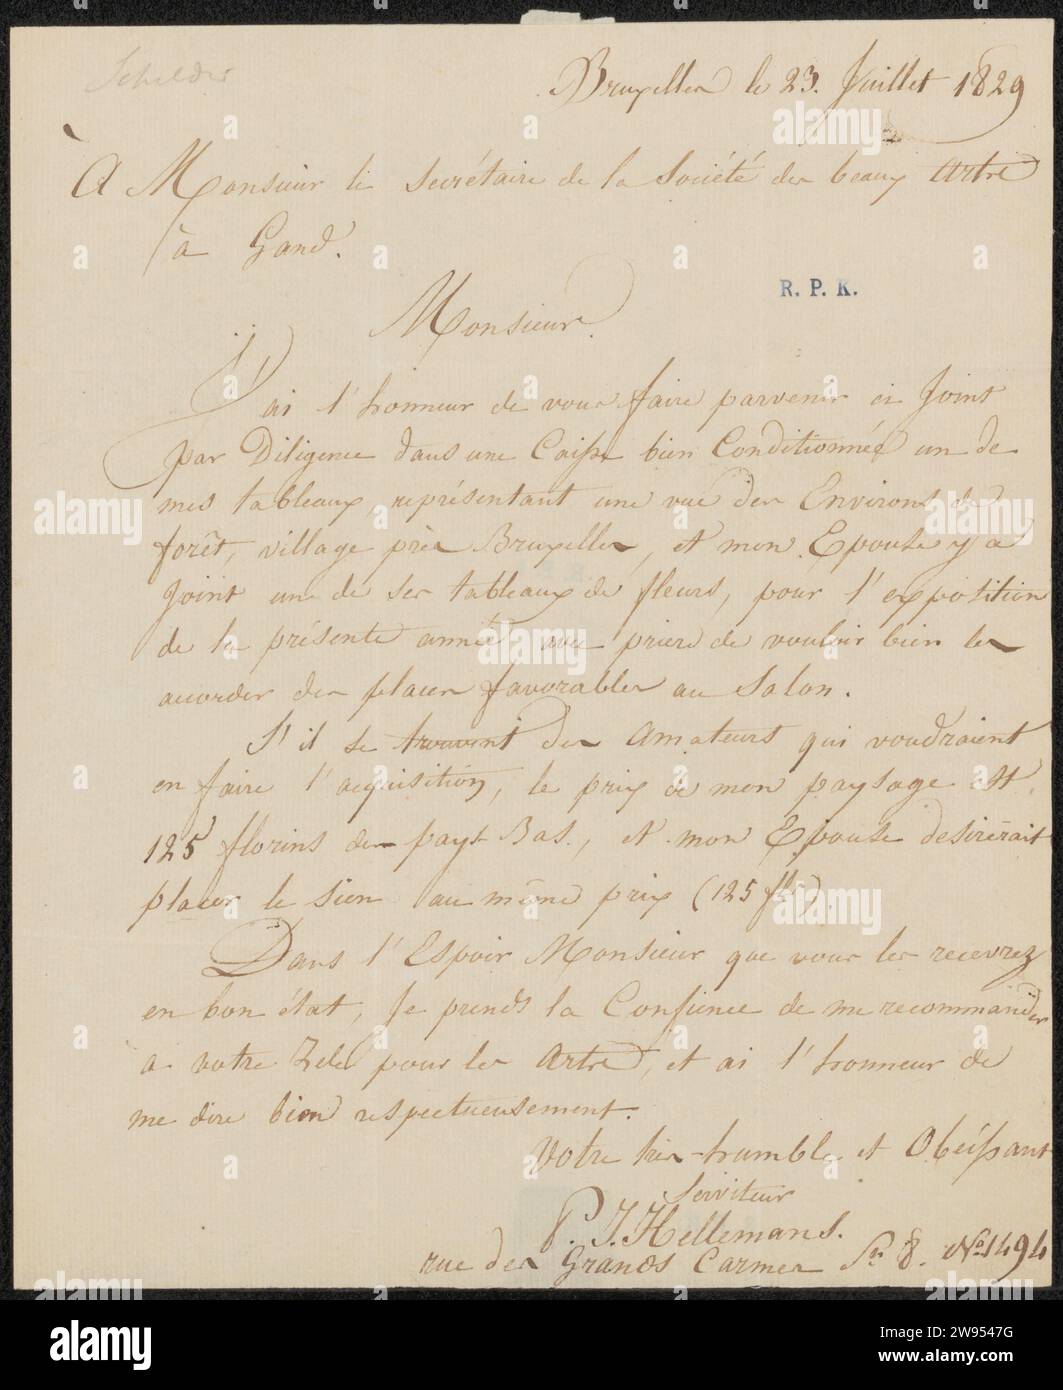 Schilder
Bruxelles le 23. Juillet 1829
A Monsieur le Secrétaire de la Société des beaux Arts
à Gand.
R. P. K.
Monsieur.
J'ai l'honneur de vous faire parvenir ci Joint
par Diligence dans une Caisse bien Conditionnée un de
mes tableaux, représentant une vue des Environs de
forêt, village près Bruxelles, et mon Epouse y a
Joint un de ses tableaux de fleurs, pour l'exposition
de la présente année, avec prière de vouloir bien les
accorder des places favorables au Salon.
S'il se trouvent des Amateurs qui voudraient
en faire l'acquisition, le prix de mon paysage est
125 florins des pays Bas., et mon Epouse desirerait
placer le sien au même prix (125 fls).
Dans l'Espoir Monsieur que vous les recevrez
en bon état, Je prends la Confience de me recommander
a votre Zele pour les Arts, et ai l'honneur de
me dire bien respectueusement.
Votre très-humble et Obéissant
Serviteur
P. J. Hellemans.
rue des Grands Carmes Sn 8. No 1494
alamy
Image ID: 2W9547G
www.alamy.com